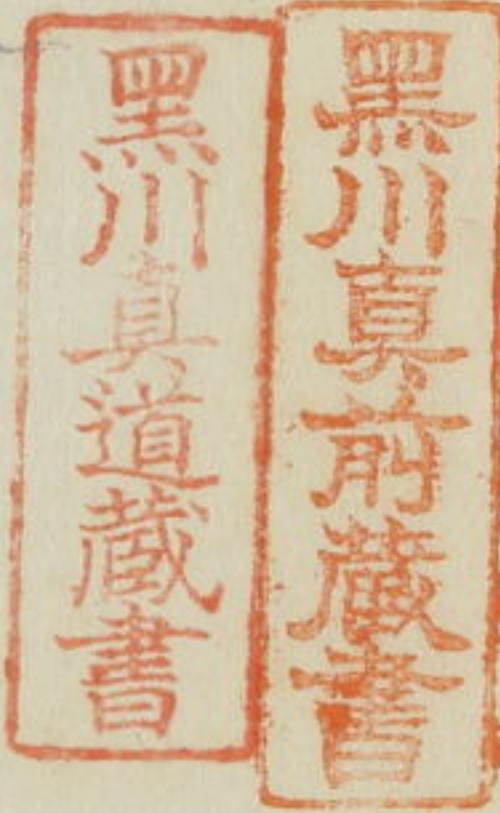 黒川真前蔵書
黒川真道蔵書